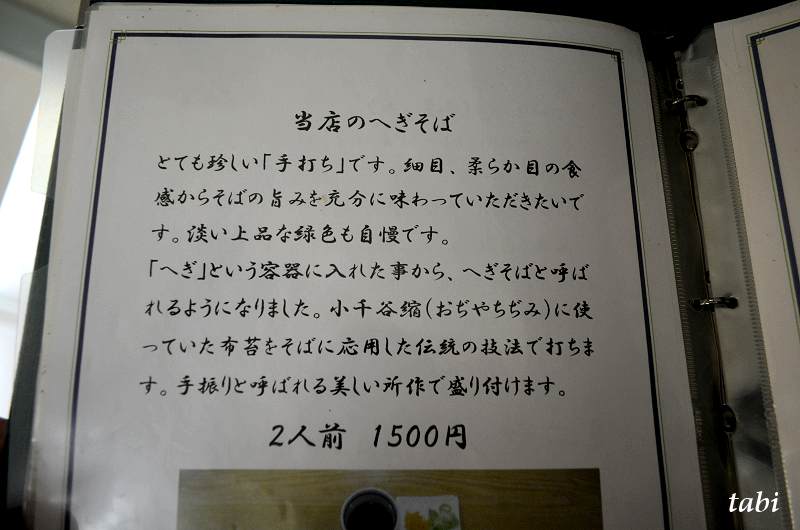 当店のへぎそば
とても珍しい「手打ち」です。細目、柔らか目の食
感からそばの旨みを充分に味わっていただきたいで
す。淡い上品な緑色も自慢です。
「へぎ」という容器に入れた事から、へぎそばと呼ば
れるようになりました。小千谷縮(おぢやちぢみ)に使
っていた布苔をそばに応用した伝統の技法で打ちま
す。手振りと呼ばれる美しい所作で盛り付けます。
2人前 1500円
tabi